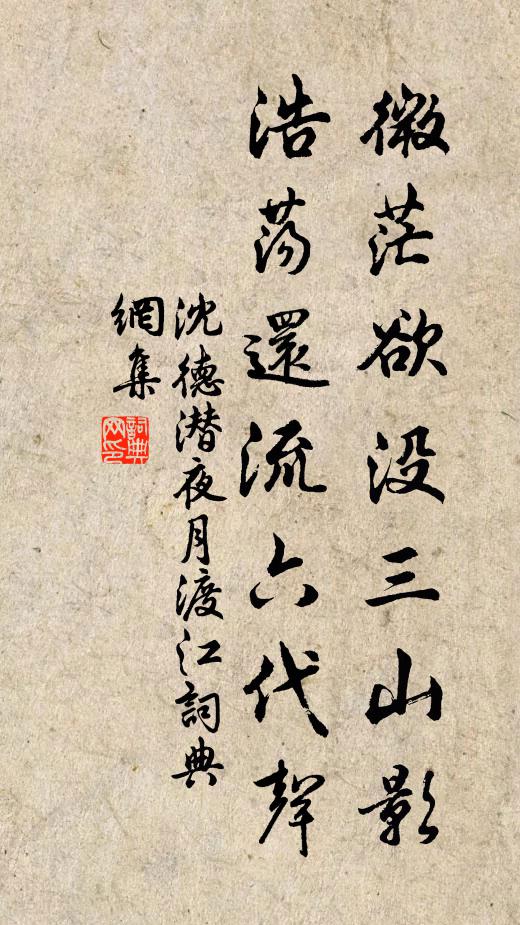 微茫欲没三山影
浩荡還流六代聲
沈德潜夜月渡江詞典
網集
詞典网印